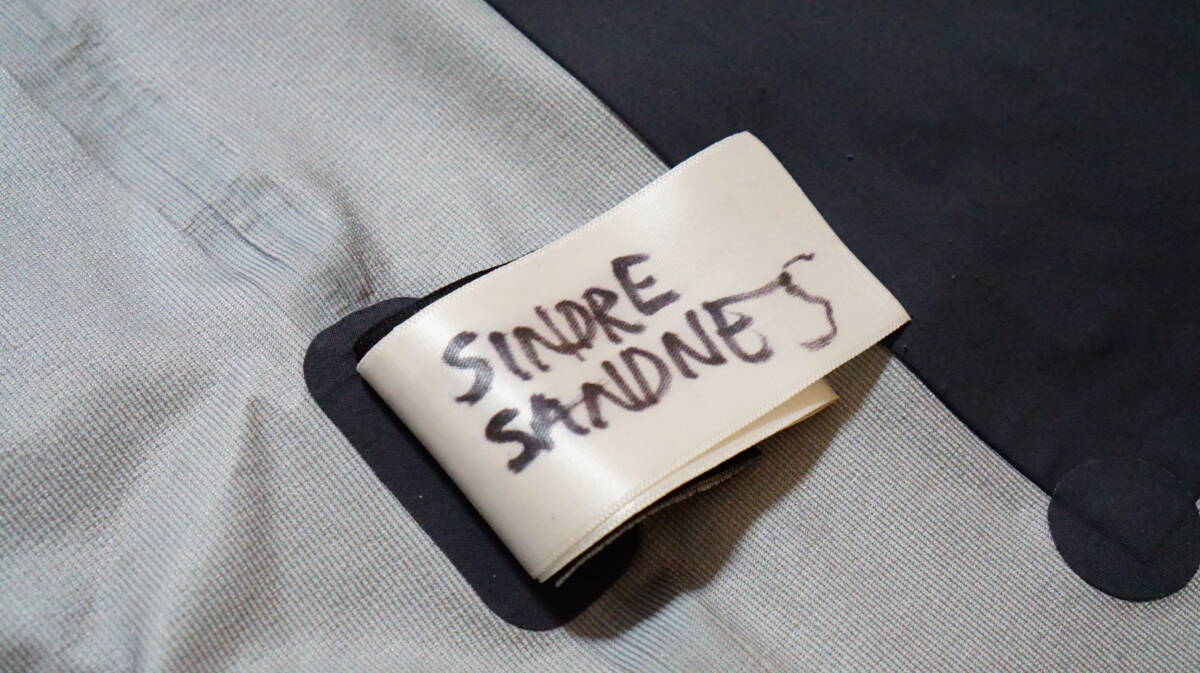 SINDRE
SANDNES